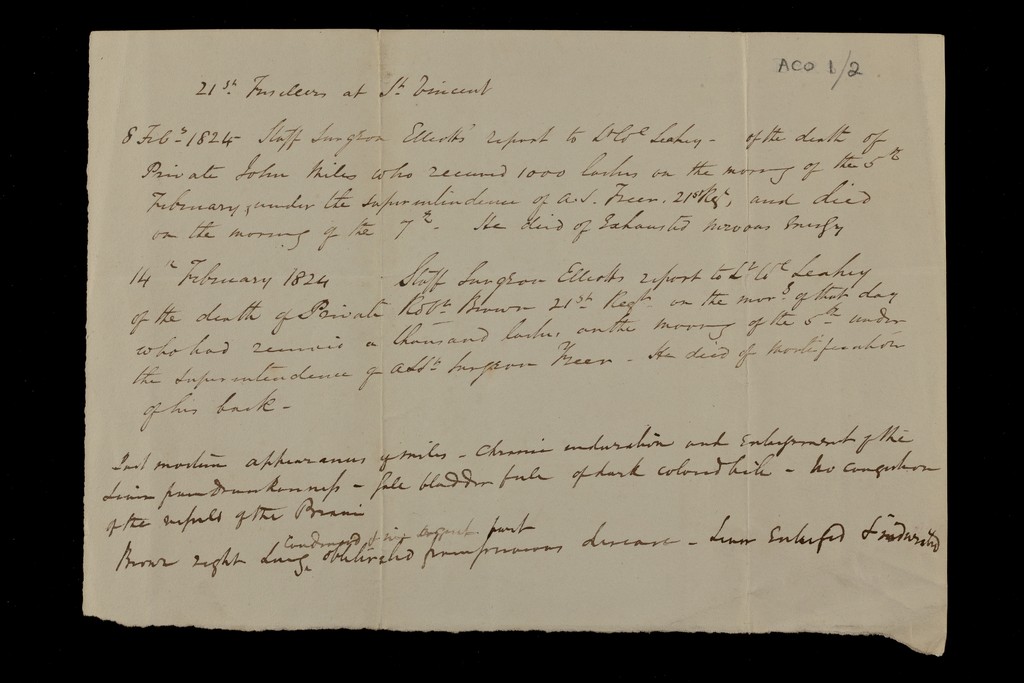 ACO 1/2
21st Fusileers at St Vincent
8 Feby 1824 Staff Surgeon Elliott's report to Lt Col Leahy - of the death of
Private John Miles who received 1000 lashes on the morng of the 5th
February, under the superintendence of A.S. Freer. 21st Regt, and died
on the morning of the 7th. He died of Exhausted nervous Energy
14th February 1824 Staff Surgeon Elliotts report to Lt Col Leahey
of the death of Private Robt Brown 21st Regt on the morg of that day
who had received a thousand lashes on the morning of the 5th under
the superintendence of Asst Surgeon Freer - He died of mortification
of his back -
Post mortem appearances of Miles - Chronic induration and Enlargement of the
Liver from Drunkenness - Gall bladder full of dark colored bile - No congestion
of the vessels of the Brain
condensed & its part
Brown right Lung obliterated from previous disease - Liver Enlarged & indurated